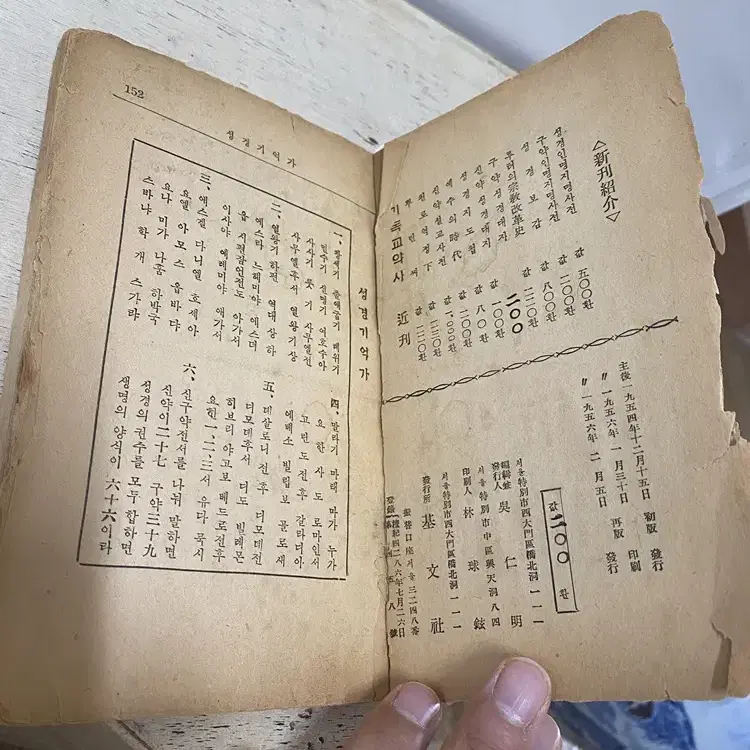 152
성경기억가
성경기억가
一、창세기 출애굽기 레위기
민수기 신명기 여호수아
사사기 룻기 사무엘전
사무엘후서 열왕기상
二、열왕기하전 역대상하
에스라 느헤미야 에스더
욥 시편잠언전도 아가서
이사야 예레미야 애가서
三、에스겔 다니엘 호세아
요엘 아모스 옵바댜
요나 미가 나훔 하박국
스바냐 학개 스가랴
四、말라기 마태 마가 누가
요한 사도 로마인서
고린도전후 갈라디아
에베소 빌립보 골로새
五、데살로니전후 디모데전
디모데후서 디도 빌레몬
히브리 야고보 베드로전후
요한一、二、三서 유다 묵시
六、신구약전서를 나눠 말하면
신약이二十七 구약三十九
성경의 권수를 모두 합하면
생명의 양식이 六十六이라
△新刊紹介▽
성경인명지명사전 값 五○○환
구약인명지명사전 값 八○○환
성경보감 값 二○○환
루터의宗敎改革史 값 二二○환
구약성경대지 二○○
신약성경대지 값 一○○환
성경지도첩 값 八○환
예수의時代 값 二○○환
신약설교사전 값 一,○○○환
천로역정 下 값 二○○환
값 二二○환
기독교약사 近刊
主後一九五四年十二月十五日 初版 發行
〃 一九五六年 一月三十日 再版 印刷
〃 一九五六年 二月五日 發行
값 二○○ 환
서울特別市西大門區橋北洞一一一
編輯兼發行人 吳仁明
서울特別市中區興天洞八四
印刷人 林球鉉
서울特別市西大門區橋北洞一一一
發行所 基文社
振替口座서울三二四八番
登錄檀紀四二八六年七月二六日
第四五八號